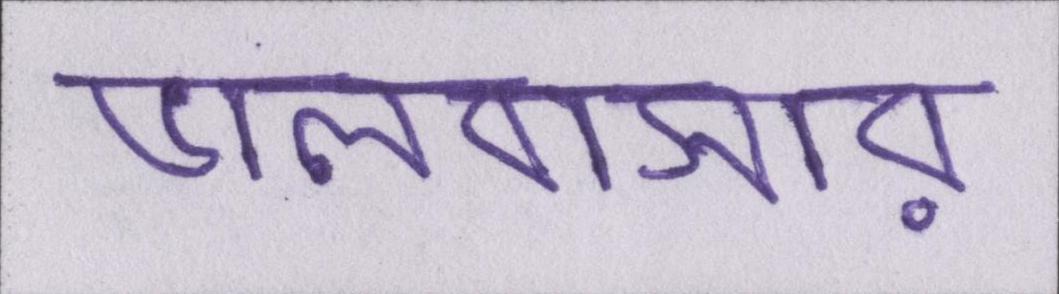 ভালবাসার